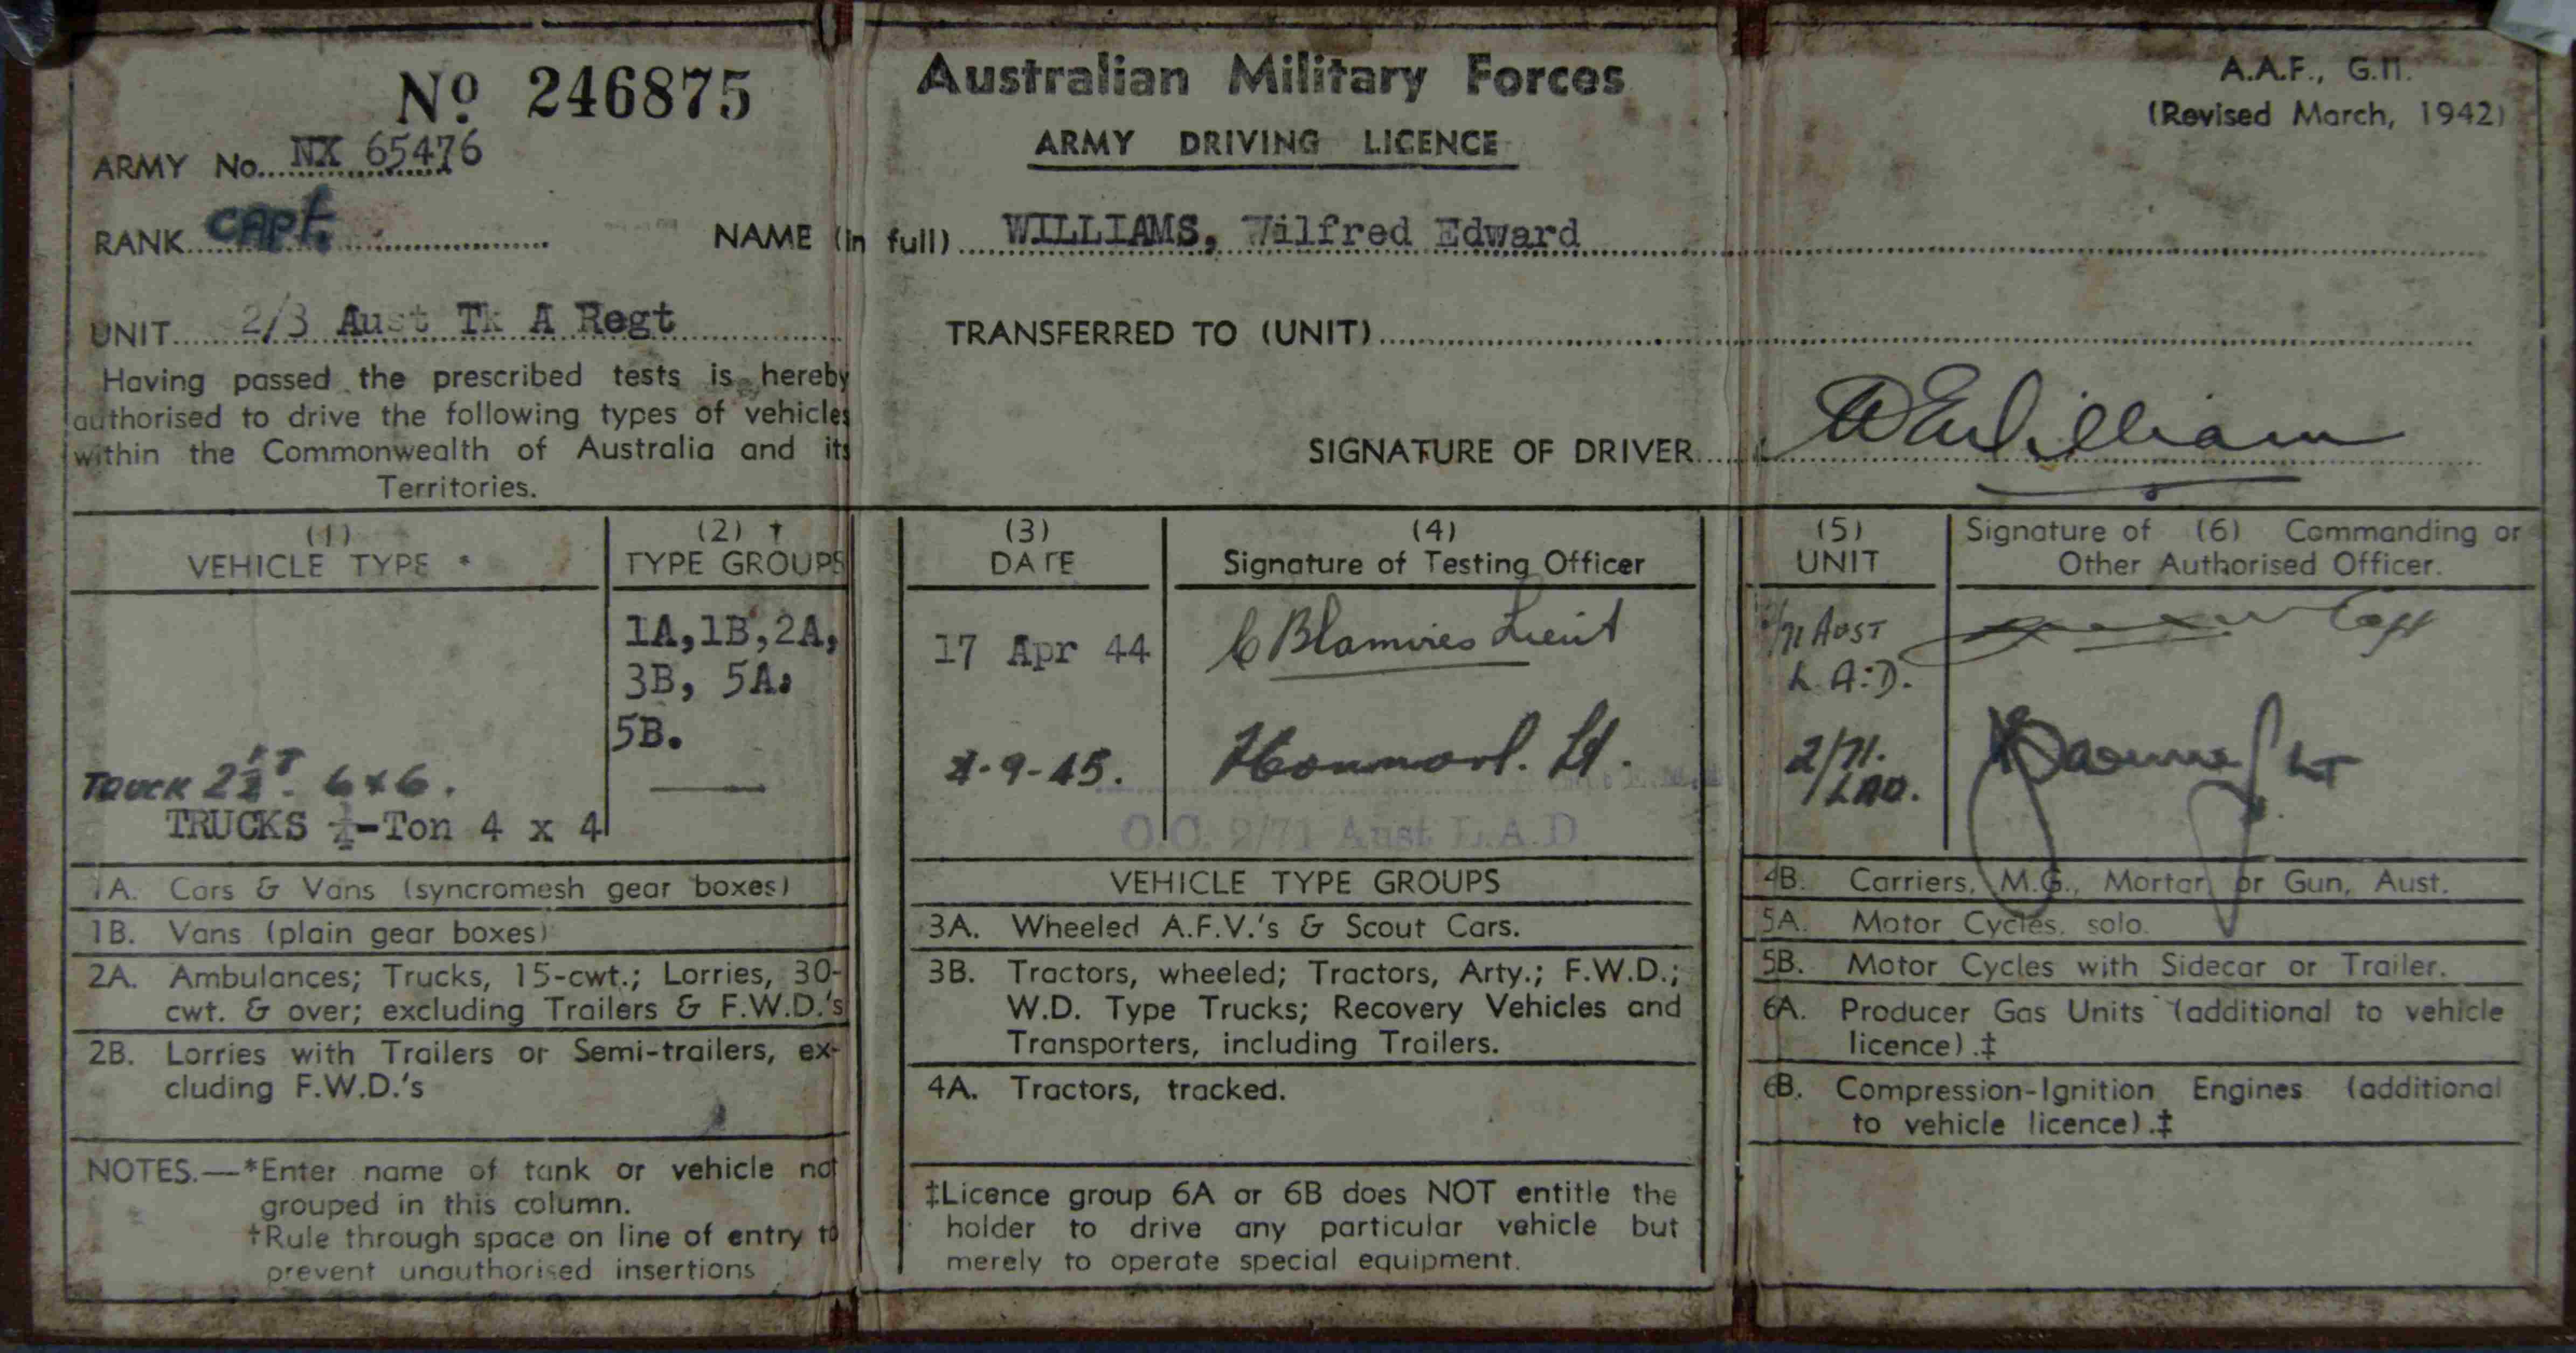 No 246875
Australian Military Forces
ARMY DRIVING LICENCE
A.A.F., G.11.
(Revised March, 1942)
ARMY No. NX 65476
RANK Capt.
NAME (in full) WILLIAMS, Wilfred Edward
UNIT 2/3 Aust Tk A Regt
TRANSFERRED TO (UNIT)
Having passed the prescribed tests is hereby
authorised to drive the following types of vehicles
within the Commonwealth of Australia and its
Territories.
SIGNATURE OF DRIVER WEWilliams
(1)
VEHICLE TYPE *
(2) †
TYPE GROUPS
(3)
DATE
(4)
Signature of Testing Officer
(5)
UNIT
Signature of (6) Commanding or
Other Authorised Officer.
1A, 1B, 2A,
3B, 5A.
5B.
17 Apr 44
C Blamires Lieut
2/71 AUST
L.A.D.
Capt
TRUCK 2½ T. 6x6.
TRUCKS ¼-Ton 4 x 4
-9-45.
Lt.
2/71.
LAD.
LT
O.C. 2/71 Aust L.A.D
1A. Cars & Vans (syncromesh gear boxes)
1B. Vans (plain gear boxes)
2A. Ambulances; Trucks, 15-cwt.; Lorries, 30-
cwt. & over; excluding Trailers & F.W.D.'s
2B. Lorries with Trailers or Semi-trailers, ex-
cluding F.W.D.'s
NOTES.—*Enter name of tank or vehicle not
grouped in this column.
†Rule through space on line of entry to
prevent unauthorised insertions
VEHICLE TYPE GROUPS
3A. Wheeled A.F.V.'s & Scout Cars.
3B. Tractors, wheeled; Tractors, Arty.; F.W.D.;
W.D. Type Trucks; Recovery Vehicles and
Transporters, including Trailers.
4A. Tractors, tracked.
‡Licence group 6A or 6B does NOT entitle the
holder to drive any particular vehicle but
merely to operate special equipment.
4B. Carriers, M.G., Mortar or Gun, Aust.
5A. Motor Cycles, solo.
5B. Motor Cycles with Sidecar or Trailer.
6A. Producer Gas Units (additional to vehicle
licence).‡
6B. Compression-Ignition Engines (additional
to vehicle licence).‡